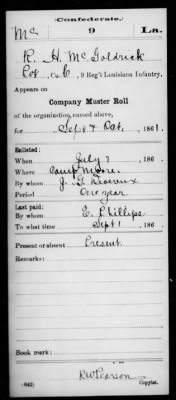 (Confederate.)
Mc 9 La.
R. H. McGoldrick
Co. C, 9 Reg't Louisiana Infantry.
Appears on
Company Muster Roll
of the organization named above,
for Sept & Oct, 1861.
Enlisted:
When July 7, 186 .
Where Camp Moore.
By whom J. G.
Period One year
Last paid:
By whom E. Phillips
To what time Sept 1, 186 .
Present or absent Present
Remarks:
Book mark:
(642) R W Pearson
Copyist.